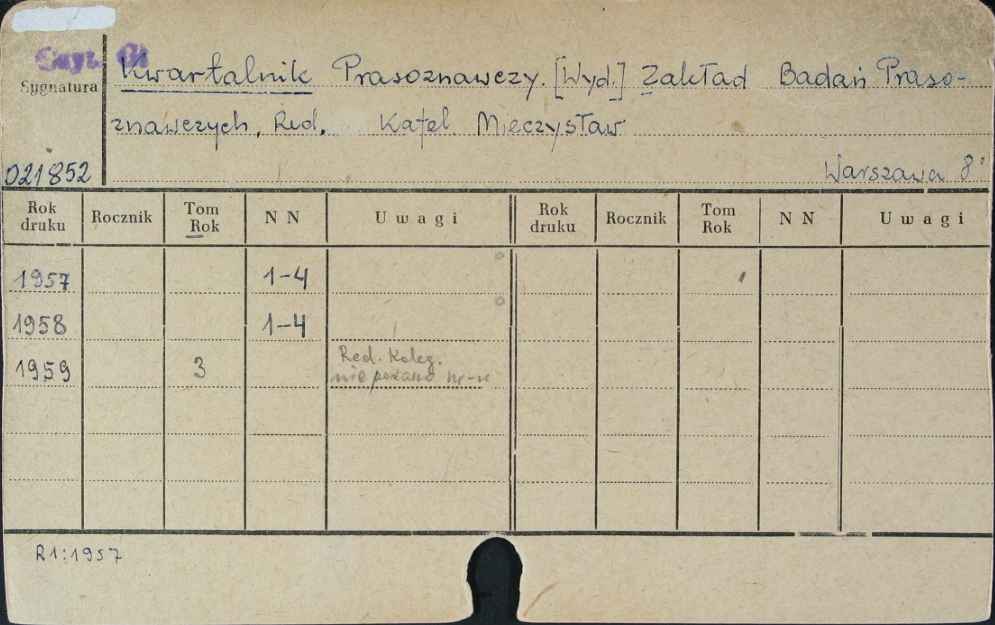 Kwartalnik Prasoznawczy. [Wyd.] Zakład Badań Praso-
Sygnatura
znawczych, Red. Kafel Mieczysław
021852
Warszawa 8°
Rok druku Rocznik Tom Rok N N Uwagi Rok druku Rocznik Tom Rok N N Uwagi
1957 1-4
1958 1-4
1959 3 Red. Koleg.
nie podano nr-u
R1:1957